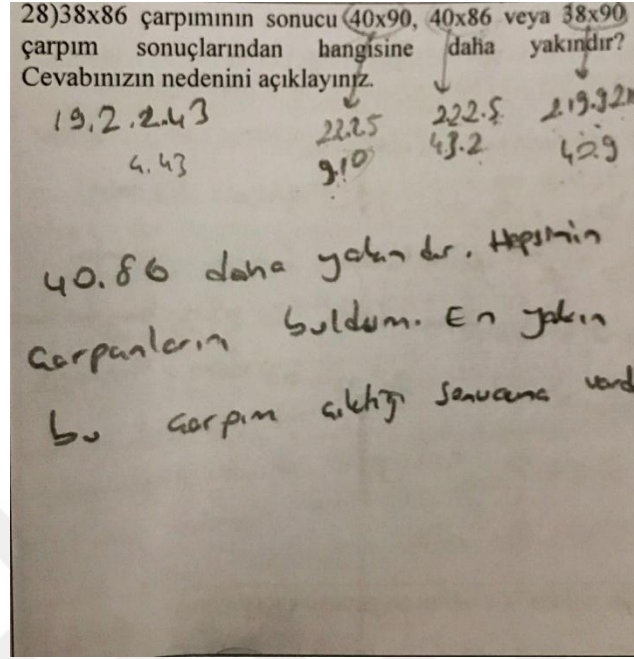 28)38x86 çarpımının sonucu 40x90, 40x86 veya 38x90
çarpım sonuçlarından hangisine daha yakındır?
Cevabınızın nedenini açıklayınız.
19.2.2.43 22.25 222.5 2.19.92
4.43 9.10 43.2 40.9
40.86 daha yakındır. Hepsinin
çarpanların buldum. En yakın
bu çarpım çıktığı sonucuna vard